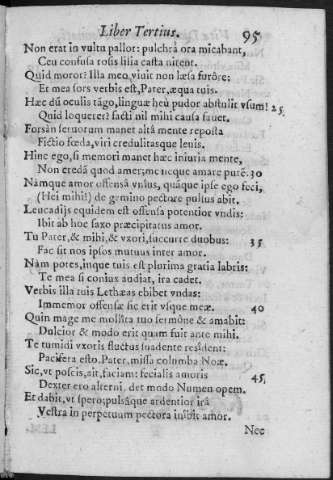 Liber Tertius. 95
Non erat in vultu pallor: pulchrâ ora micabant,
Ceu confusa rosis lilia casta nitent.
Quid moror? Illa meo, viuit non læsa furôre;
Et mea sors verbis est, Pater, æqua tuis.
Hæc dũ oculis tãgo, linguæ heù pudor abstulit vsum! 25
Quid loquerer? facti nil mihi causa fauet.
Forsàn seruorum manet altâ mente reposta
Fictio fœda, viri credulitasque leuis.
Hinc ego, si memori manet hæc iniuria mente,
Non eredã quod amer; me necque amare putẽ. 30
Namque amor offensâ vnius, quâque ipse ego feci,
(Hei mihi!) de gemino pectore pulsus abit.
Leucadijs equidem est offensa potentior vndis:
Ibit ab hoc saxo præcipitatus amor.
Tu Pater, & mihi, & vxori, succurre duobus: 35
Fac sit nos ipsos mutuus inter amor.
Nam potes, inque tuis est plurima gratia labris:
Te mea si coniux audiat, ira cadet.
Verbis illa tuis Lethæas ebibet vndas:
Immemor offensæ sic erit vsque meæ. 40
Quin mage me mollita tuo sermône & amabit:
Dulcior & modo erit quam fuit ante mihi.
Te tumidi vxoris fluctus suadente resident:
Pacifera esto, Pater, missa columba Noæ.
Sic, vt poscis, ait, faciam: fecialis amoris 45
Dexter ero alterni, det modo Numen opem.
Et dabit, vt spero; pulsâque ardentior irâ
Vestra in perpetuum pectora iunget amor.
Nec